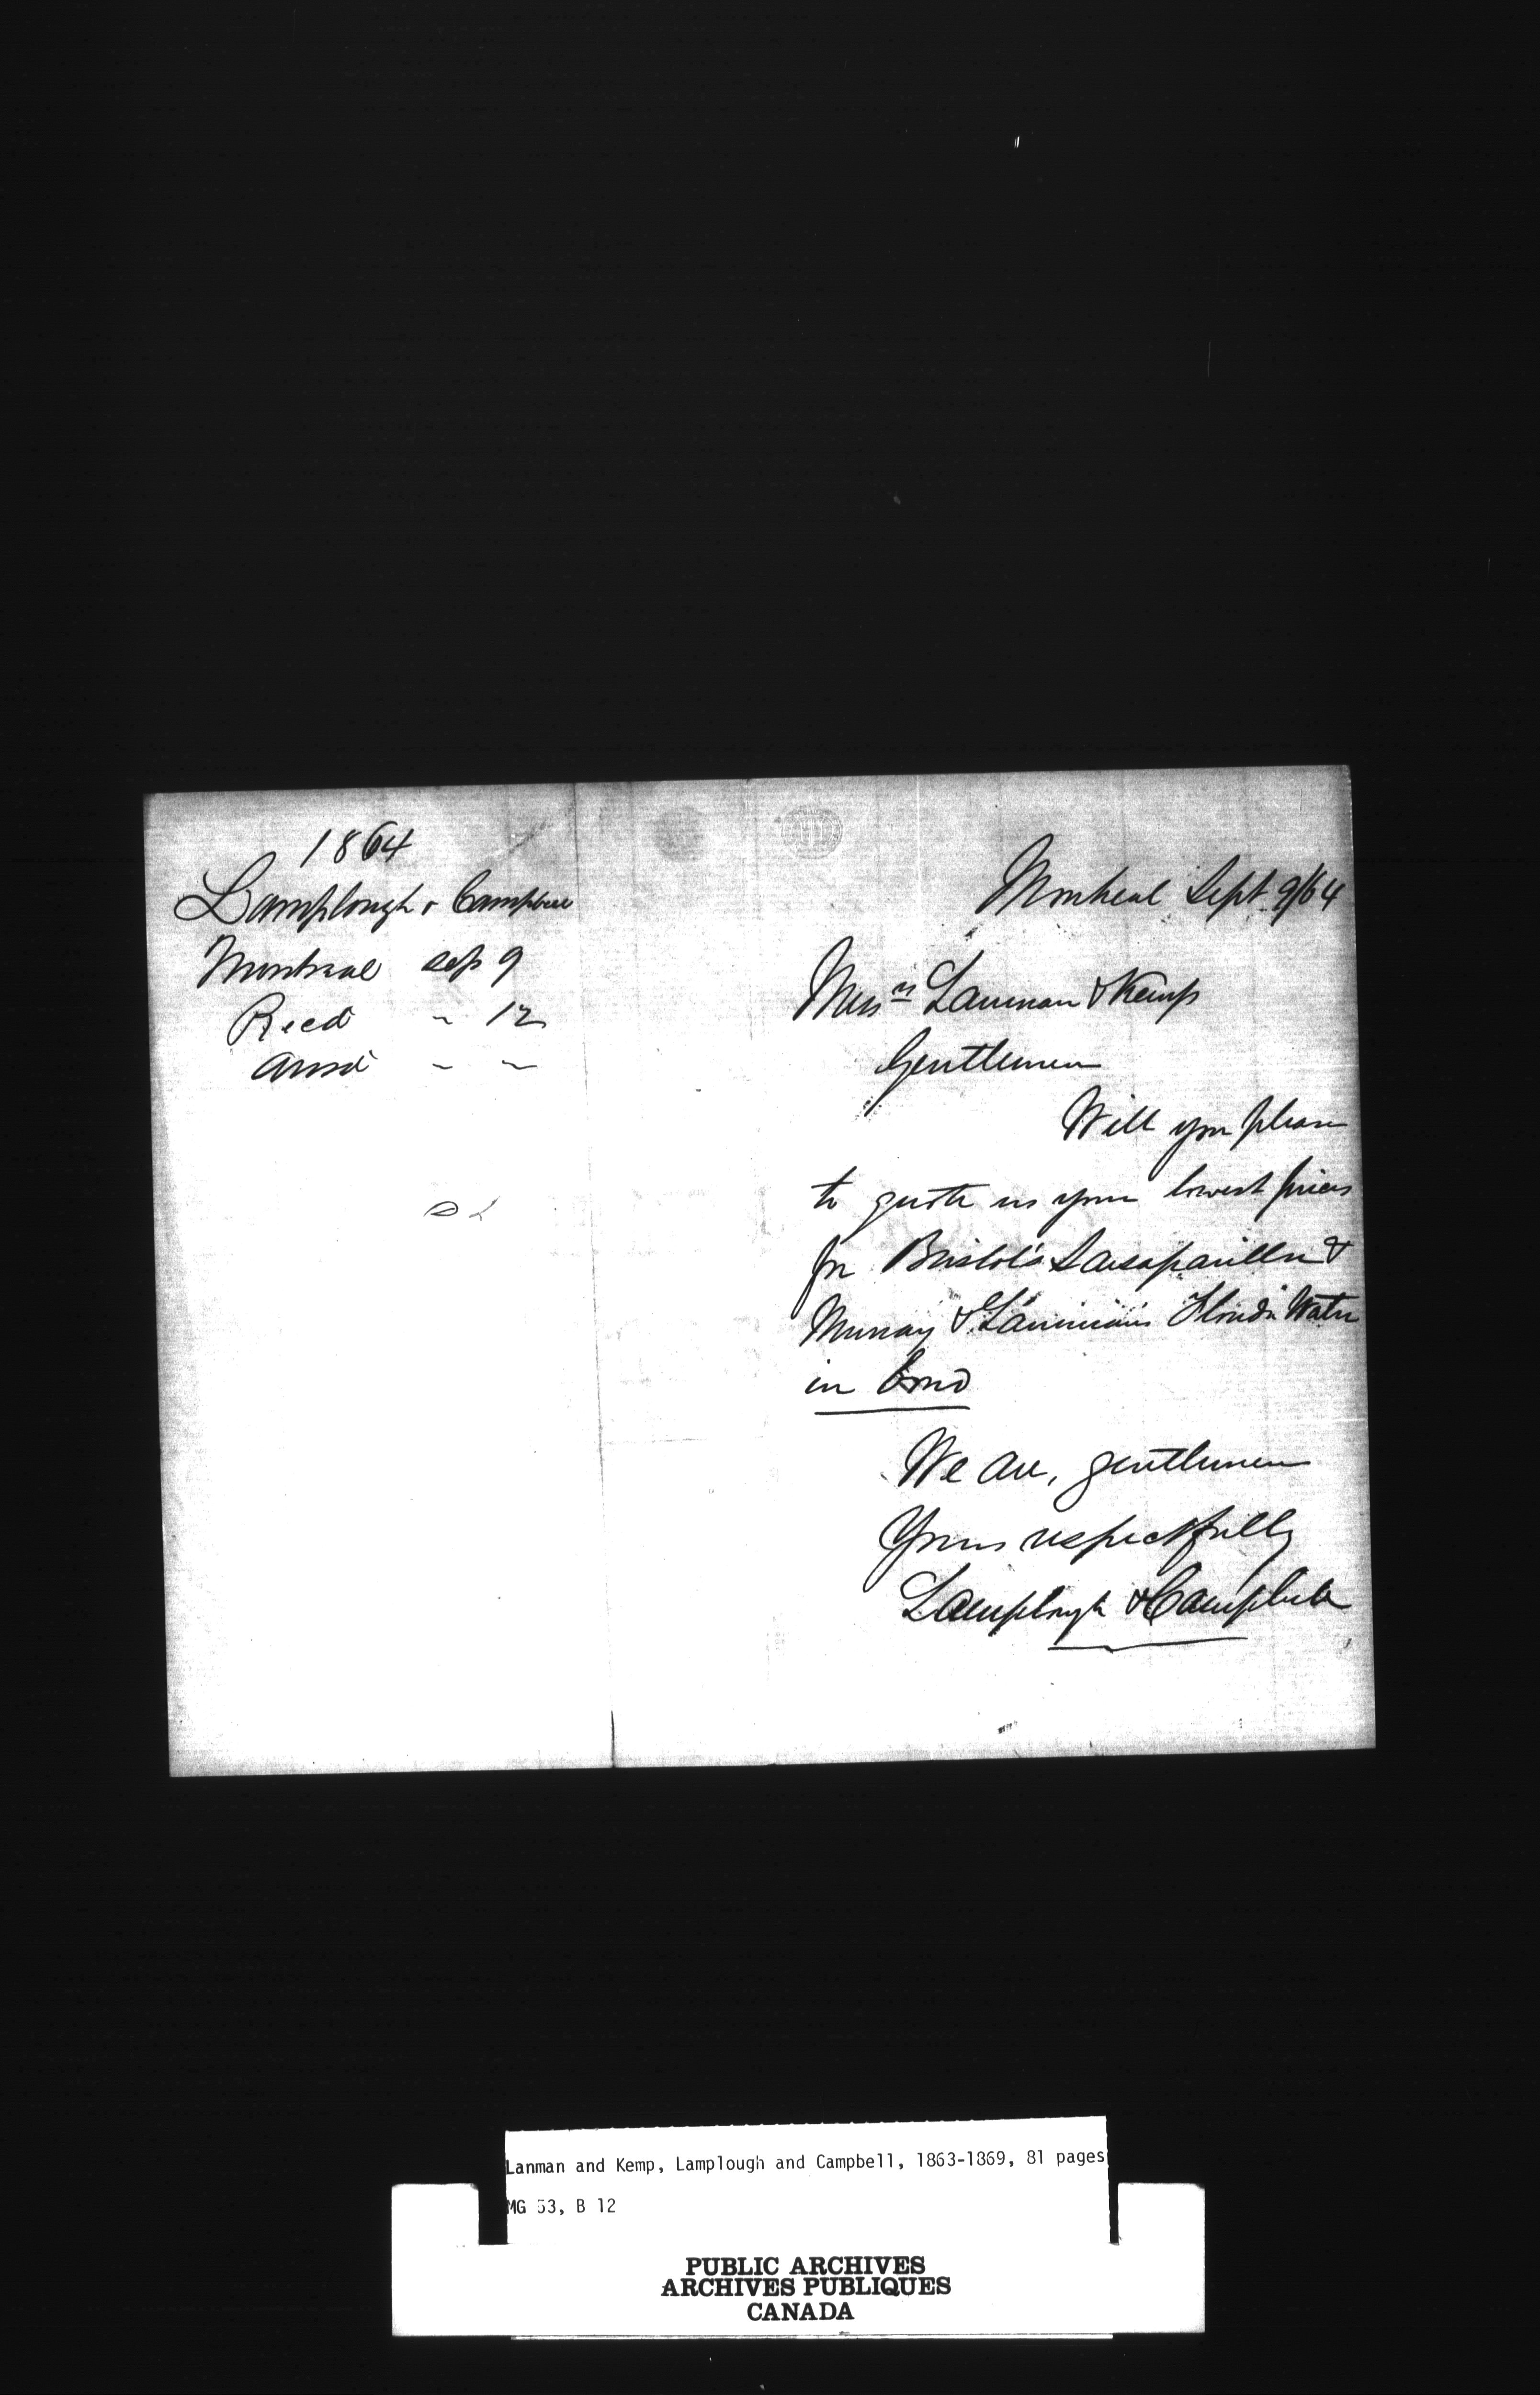 1864
Lamplough & Campbell
Montreal Sep 9
Recd " 12
Ansd " "
Montreal Sept 9/64
Messrs Lanman & Kemp
Gentlemen
Will you please
to quote us your lowest prices
for Bristol's Sarsaparilla &
Murray & Lanman's Florida Water
in bond
We are, gentlemen
Yours respectfully
Lamplough & Campbell
Lanman and Kemp, Lamplough and Campbell, 1863-1869, 81 pages
MG 53, B 12
PUBLIC ARCHIVES
ARCHIVES PUBLIQUES
CANADA